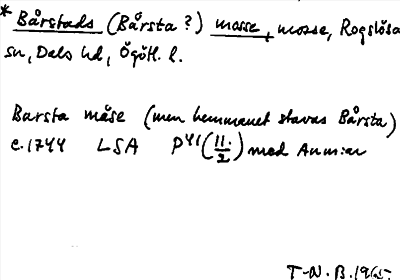 * Bårstads (Bårsta?) mosse, mosse, Rogslösa
sn, Dals hd, Ögötl. l.
Barsta måse (men hemmanet stavas Bårsta)
c. 1744 LSA P41 (11:/2) med Anm:ar
T-N.B. 1965.